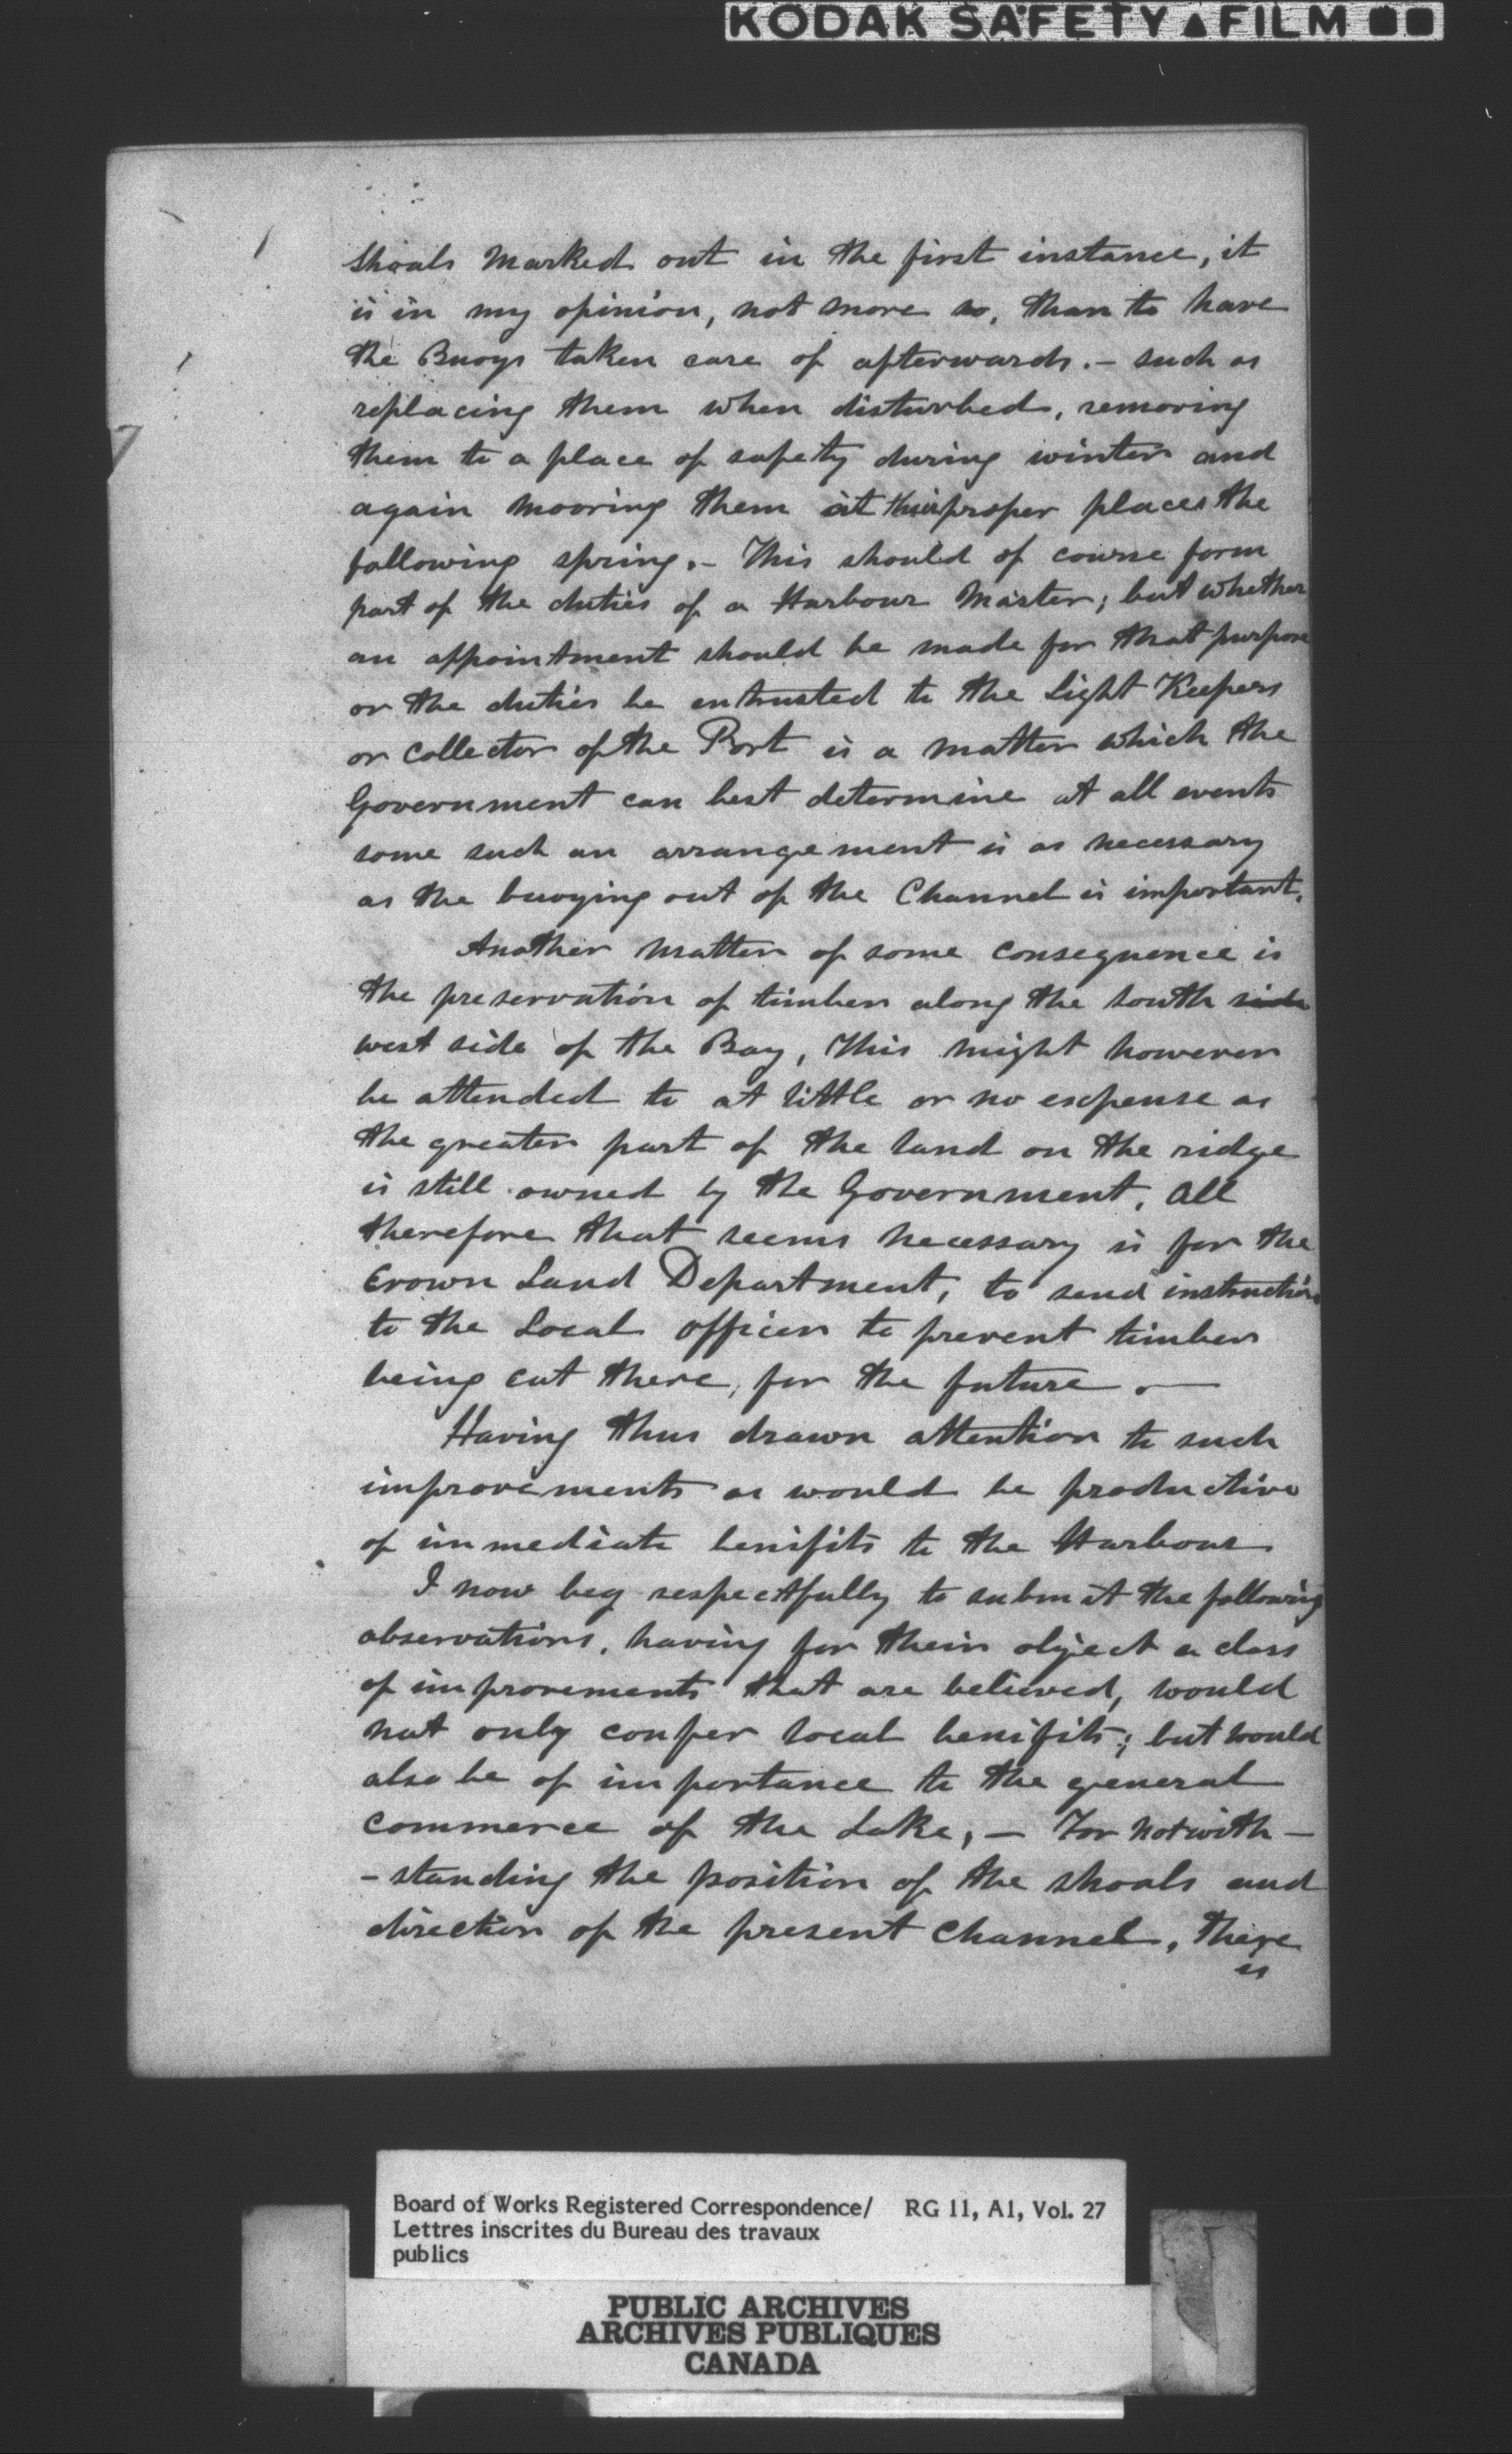 KODAK SAFETY ▲ FILM ■■
shoals marked out in the first instance, it
is in my opinion, not more so, than to have
the Buoys taken care of afterwards. – such as
replacing them when disturbed, removing
them to a place of safety during winter and
again mooring them at their proper places the
following spring. – This should of course form
part of the duties of a Harbour Master; but whether
an appointment should be made for that purpose
or the duties be entrusted to the Light Keepers
or Collector of the Port is a matter which the
Government can best determine at all events
some such an arrangement is as necessary
as the buoying out of the Channel is important.
Another matter of some consequence is
the preservation of timber along the south side
west side of the Bay, This might however
be attended to at little or no expense as
the greater part of the land on the ridge
is still owned by the Government, all
therefore that seems necessary is for the
Crown Land Department, to send instructions
to the Local officer to prevent timber
being cut there, for the future. —
Having thus drawn attention to such
improvements as would be productive
of immediate benifits to the Harbour
I now beg respectfully to submit the following
observations, having for their object a class
of improvements that are believed, would
not only confer local benifits; but would
also be of importance to the general
commerce of the Lake, – For notwith –
– standing the position of the shoals and
direction of the present Channel, there
is
Board of Works Registered Correspondence/ RG 11, A1, Vol. 27
Lettres inscrites du Bureau des travaux
publics
PUBLIC ARCHIVES
ARCHIVES PUBLIQUES
CANADA